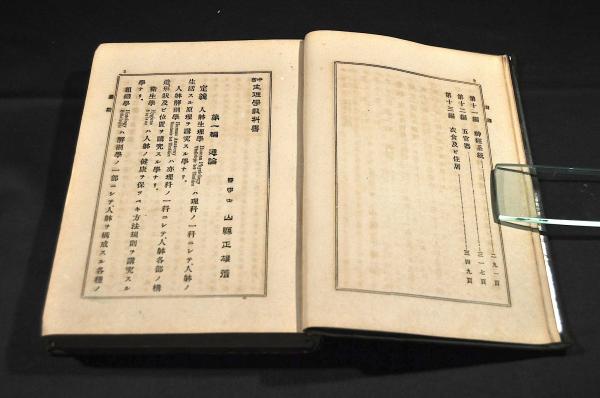 目錄
第十一編 神經系統 二九一頁
第十二編 五官器 三一七頁
第十三編 衣食及ビ住居 三四九頁
中等生理學敎科書
醫學士 山縣正雄 著
第一編 通論
定義 人體生理學 Human Physiology ハ理科ノ一科ニシテ、人體ノ
生活スル原理ヲ講究スル學ナリ。
人體解剖學 Human Anatomy ハ亦理科ノ一科ニシテ、人體各部ノ構
造形狀及ビ位置ヲ講究スル學ナリ。
衛生學 Hygiene ハ人體ノ健康ヲ保ツベキ方法規則ヲ講究スル
學ナリ。
組織學 Histology ハ解剖學ノ一部ニシテ、人體ヲ構成スル各種ノ
通論